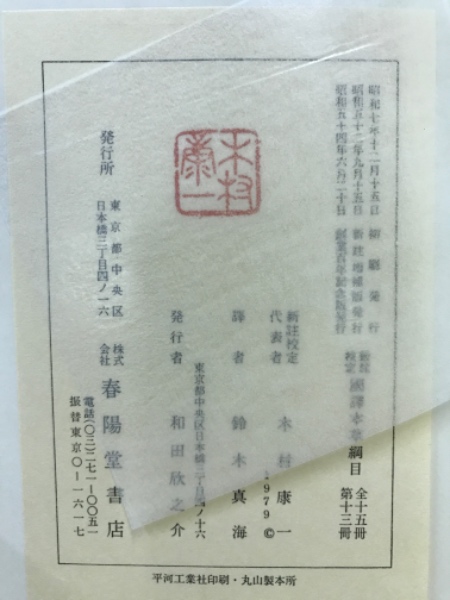 昭和七年十二月十五日 初版発行
昭和五十二年九月十五日 新註増補版発行
昭和五十四年六月二十日 創業百年記念版発行
新註校定 國譯本草綱目 全十五冊
第十三冊
新註校定
代表者 木村康一
1979 ©
譯者 鈴木真海
東京都中央区日本橋三丁目四ノ十六
発行者 和田欣之介
木村康一
発行所 東京都中央区
日本橋三丁目四ノ一六
株式会社 春陽堂書店
電話(〇三)二七一―〇〇五一
振替東京〇―一六一七
平河工業社印刷・丸山製本所